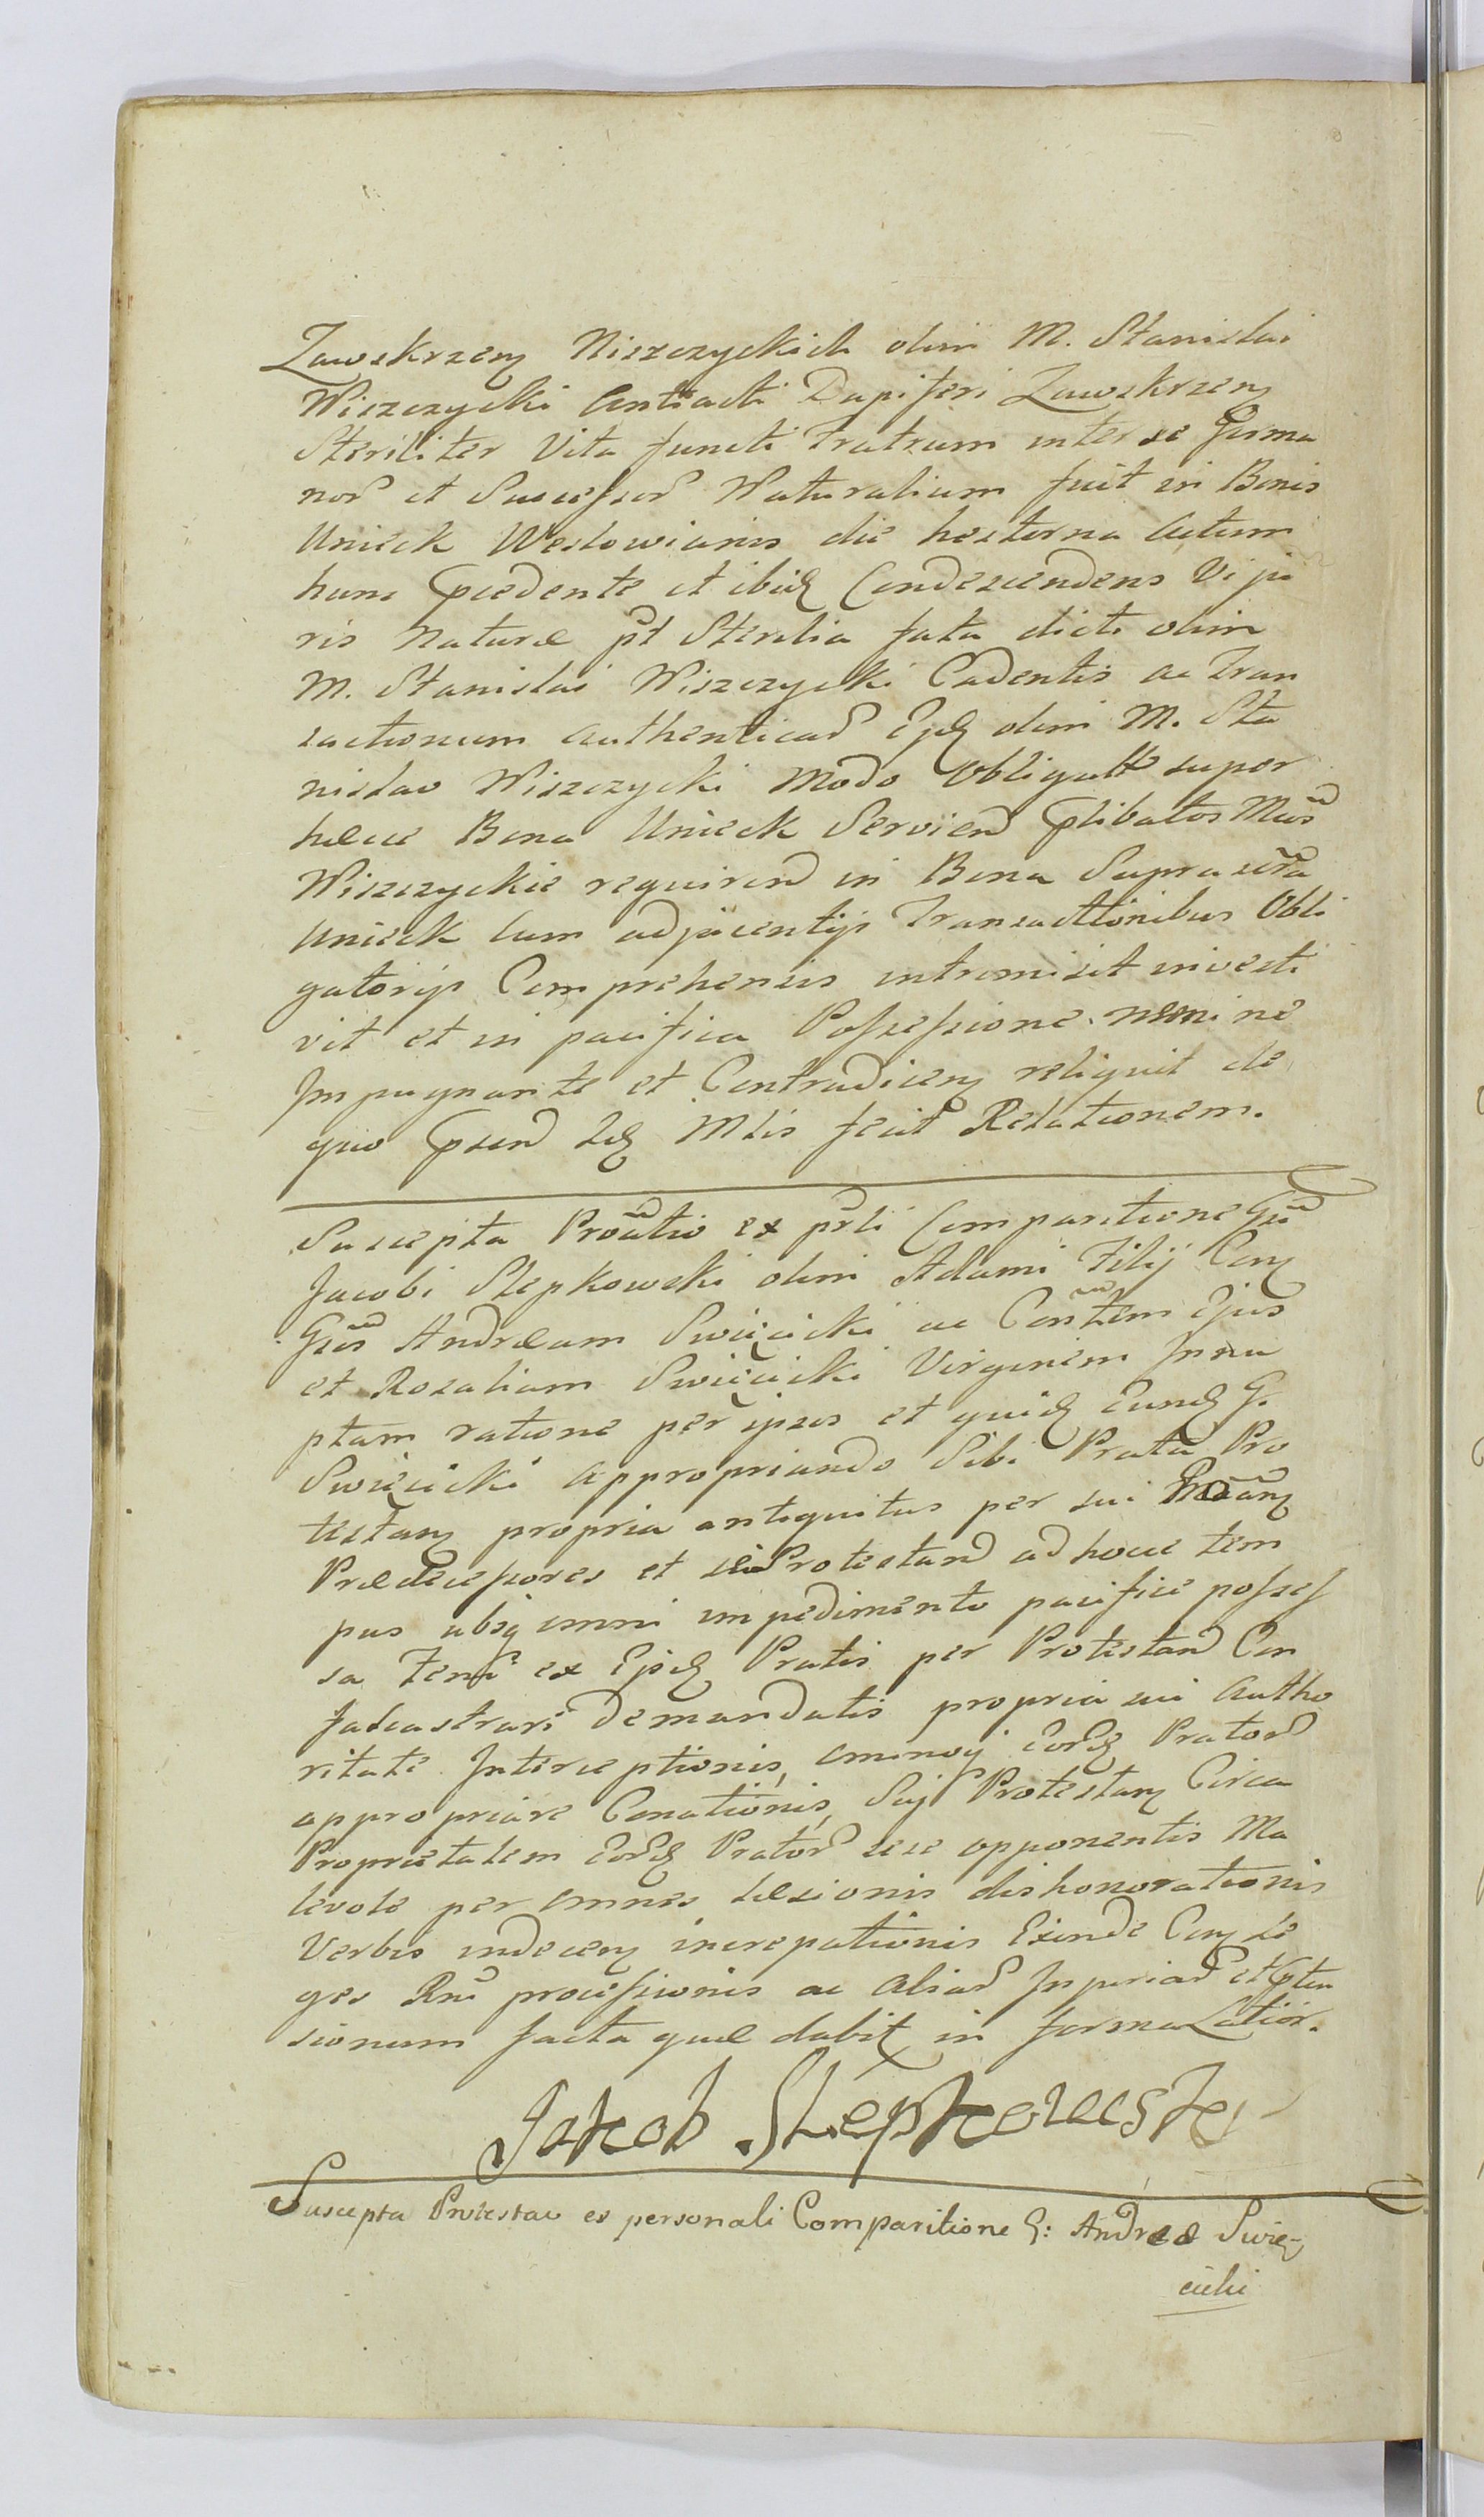 Zawskrzen Niszczyckich olim M. Stanislai
Niszczycki Antiacti Dapiferi Zawskrzen
Steriliter Vita functi Fratrum inter se Germa
nor et Successor Naturalium fuit in Bonis
Unieck Weslowianis die hesterna Actum
hunc pcedente et ibid Condescendens Vi ju
ris Naturæ pt Sterilia fata dicti olim
M. Stanislai Niszczycki Cadentis ac Tran
sactionum authenticar Ejd olim M. Sta
nislao Niszczycki Modo Obligatto super
hæcce Bona Unieck Servien plibatos Mcos
Niszczyckie requiren in Bona Supra scra
Unieck cum adjacentijs Transacttionibus Obli
gatorijs Comprehensis intromisit investi
vit et in pacifica Possessione nemine
Impugnante et Contradicen reliquit de
quo psen Idq Mlis fecit Relationem.
Suscepta Protatio ex prli Comparitione Gsi
Jacobi Slepkowski olim Adami Filij Con
Gsos Andræam Swięcicki ac Contem Ejus
et Rosaliam Swięcicki Virginem Innu
ptam ratione per ipsos et quid Eund G.
Swięcicki appropriando Sibi Prata Pro
testan propria antiquitus per sui
Prædecessores et Protestan ad hocce tem
pus absq omni impedimento pacifice posses
sa Tent ex Ijsd Pratis per Protestan Con
falcastrari Demandatis propria sui Autho
ritate Interceptionis, omninoq Eord Prator
appropriare Conationis, Suj Protestan Circa
Proprietatem Eord Prator sese opponentis Ma
levole per omnes læsionis dishonorationis
Verbis indecen increpationis Exinde Con le
ges Rni processionis ac Aliar Injuriar et pten
sionum facta quæ dabit in forma Latiori.
Jakob Slepkowsky
Suscepta Protestao ex personali Comparitione G: Andreæ Swię-
cicki